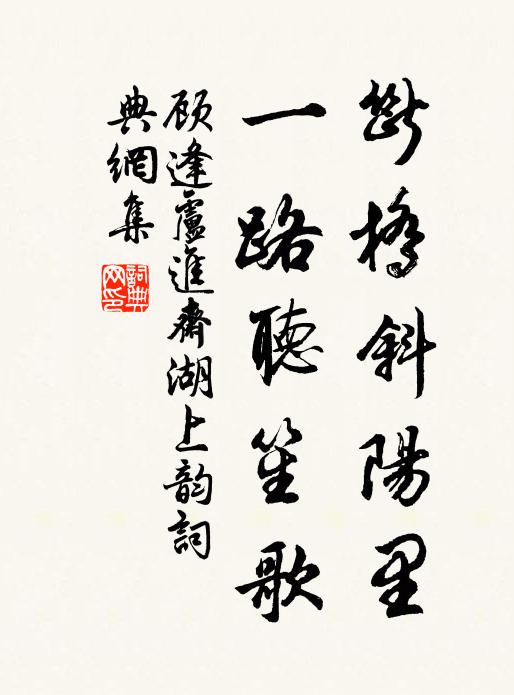 斷橋斜陽里
一路聽笙歌
顾逢盧進齋湖上韵詞
典網集
詞典
网印